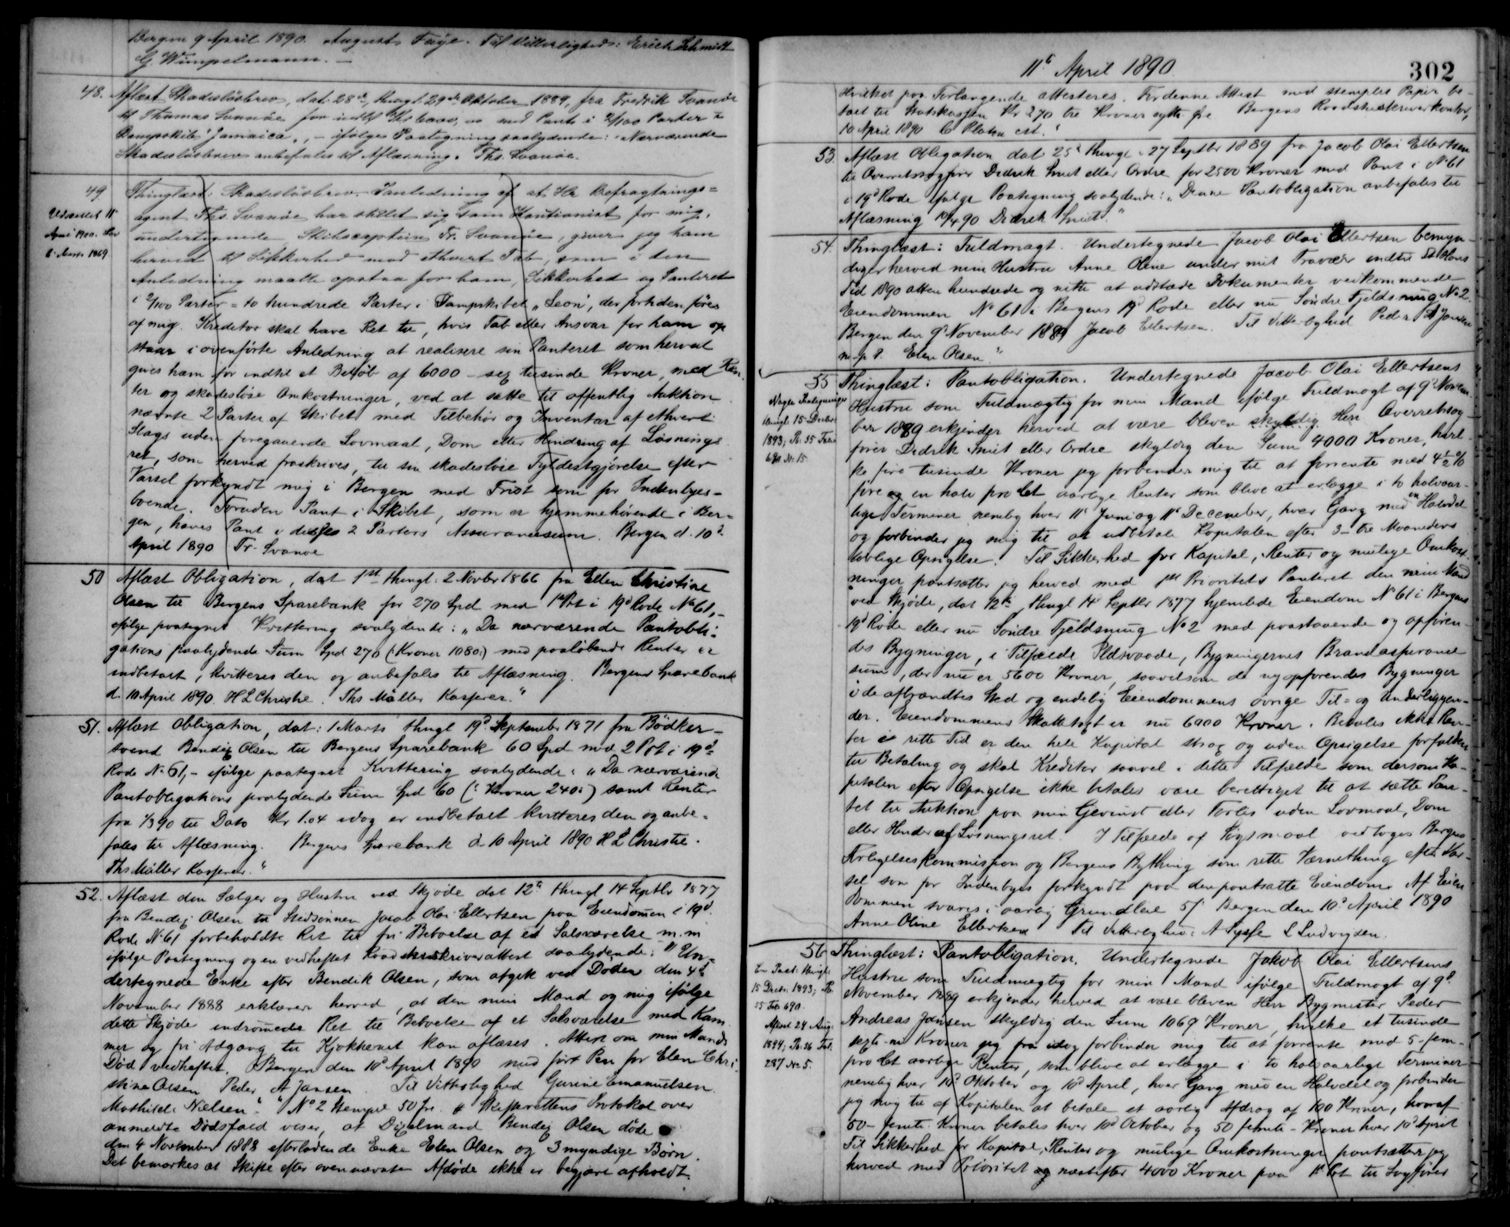 Bergen 9 April 1890. August Faye. Til Vitterlighed: Erich Schmidt
G. Wimpelmann. —
48. Aflæst Skadesløsbrev, dat. 28de, thingl. 29de Oktober 1889, fra Fredrik Svanøe
til Thomas Svanøe for indtil med Pant i 2/100 Parter i
Dampskib "Jamaica", – ifølge Paategning saalydende: Nærværende
Skadesløsbrev anbefales til Aflæsning. Ths. Svanøe.
49 Thinglæst: Skadesløsbrev. I anledning af at Hr. Befragtnings=
Udslettet 11
April 1900.
agent Ths Svanøe har stillet sig som Kautionist for mig,
undertegnede Skibskaptein Fr. Svanøe, giver jeg ham
herved til Sikkerhed mod ethvert Tab, som i den
Anledning maatte opstaa for ham, Sikkerhed og Panteret
i 2/100 Parter = to hundrede Parter i Dampskibet "Leon", der fortiden føres
af mig. Kreditor skal have Ret til, hvis Tab eller Ansvar for ham op
staar i ovenførte Anledning at realisere sin Panteret som herved
gives ham for indtil et Beløb af 6000 – sex tusinde Kroner, med Ren
ter og skadesløse Omkostninger, ved at sætte til offentlig Auktion
nævnte 2 Parter af Skibet med Tilbehør og Inventar af ethvert
Slags uden foregaaende Lovmaal, Dom eller Hindring af Løsnings
ret, som herved fraskrives, til sin skadesløse Fyldestgjørelse efter
Varsel forkyndt mig i Bergen med Frist som for Indenbyes=
boende. Foruden Pant i Skibet, som er hjemmehørende i Ber=
gen, haves Pant i disses 2 Parters Assurancesum. Bergen d. 10de
April 1890 Fr. Svanøe
50 Aflæst Obligation, dat 1ste thingl. 2 Novbr 1866 fra Ellen Christine
Olsen til Bergens Sparebank for 270 Spd med 1ste Pr. i 19de Rode No 61,–
ifølge paategnet Kvittering saalydende: "Da nærværende Pantobli=
gations paalydende Sum Spd 270 (Kroner 1080) med paaløbende Renter er
indbetalt, kvitteres den og anbefales til Aflæsning. Bergens Sparebank
d. 10 April 1890. H L Christie. Ths Møller Kasserer."
51. Aflæst Obligation, dat: 1 Marts thingl 19de September 1871 fra Bødker=
svend Bendix Olsen til Bergens Sparebank 60 Spd med 2 Pr. i 19de
Rode No 61,– ifølge paategnet Kvittering saalydende: "Da nærværende
Pantobligations paalydende Sum Spd 60 (: Kroner 240 :) samt Renter
fra 1/3 90 til Dato Kr 1.04 idag er indbetalt kvitteres den og anbe=
fales til Aflæsning. Bergens Sparebank d 10 April 1890 H L Christie.
Ths Møller Kasserer."
52. Aflæst den Sælger og Hustru ved Skjøde dat 12te thingl 14 Septbr 1877
fra Bendix Olsen til Stedsønnen Jacob Olai Ellertsen paa Eiendommen i 19de
Rode No 61 forbeholdte Ret til fri Beboelse af et Salsværelse m.m
ifølge Paategning og en vedheftet Raadstueskriverattest saalydende: "Un=
dertegnede Enke efter Bendik Olsen, som afgik ved Døden den 4de
November 1888 erklærer herved, at den min Mand og mig ifølge
dette Skjøde indrømede Ret til Beboelse af et Salsværelse med Kam
mer og fri Adgang til Kjøkkenet kan aflæses. Attest om min Mands
Død vedheftes. Bergen den 10de April 1890 med ført Pen for Elen Chri=
stine Olsen Peder A Jansen Til Vitterlighed Gurine Emanuelsen
Mathilde Nielsen." "No 2 Stempel 50 Øre. Skifterettens Protokol over
anmeldte Dødsfald viser, at Digelmand Bendix Olsen døde
den 4 November 1888 efterladende Enke Elen Olsen og 3 myndige Børn.
Det bemærkes at Skifte efter ovennævnte Afdøde ikke er begjært afholdt.
11te April 1890
302
hvilket paa Forlangende attesteres. For denne Attest med stemplet Papir be=
talt til Statskassen Kr 2,70 Kroner sytti Øre Bergens Raadstueskriverkontor,
10 April 1890 C Platou cst."
53 Aflæst Obligation dat 25de thingl. 27 Septbr 1889 fra Jacob Olai Ellertsen
til Overretssagfører Didrik Smit eller Ordre for 2500 Kroner med Pant i No 61
i 19de Rode ifølge Paategning saalydende: "Denne Pantobligation anbefales til
Aflæsning 10/4 90 Didrik Smit."
54. Thinglæst: Fuldmagt. Undertegnede Jacob Olai Ellertsen bemyn
diger herved min Hustru Anne Oline under mit Fravær indtil
Tid 1890 atten hundrede og nitti at udstede Dokumenter vedkommende
Eiendommen No 61 i Bergens 19de Rode eller nu Søndre Fjeldsmug No 2
Bergen den 9de November 1889 Jacob Ellertsen. Til Vitterlighed Peder A Jansen
m. f. P. Elen Olsen."
55 Thinglæst: Pantobligation. Undertegnede Jacob Olai Ellertsens
Nogle Paategninger
thingl. 15 Decbr
1893, P. 55 Fol.
690 No 15
Hustru som Fuldmægtig for min Mand ifølge Fuldmagt af 9de Novem
ber 1889 erkjender herved at være bleven skyldig Herr Overretssag
fører Didrik Smit eller Ordre skyldig den Sum 4000 Kroner, hvil
ke fire tusinde Kroner jeg forbinder mig til at forrente med 4½ %
fire og en halv pro Ct aarlige Renter som blive at erlægge i to halvaar=
lige Terminer nemlig hver 11te Juni og 11te December, hver Gang med en Halvdel
og forbinder jeg mig til at udbetale Kapitalen efter 3 – tre Maaneders
lovlige Opsigelse. Til Sikkerhed for Kapital, Renter og mulige Omkost
ninger pantsætter jeg herved med 1ste Prioritets Panteret den min Mand
ved Skjøde, dat 12te thingl 14 Septbr 1877 hjemlede Eiendom No 61 i Bergens
19de Rode eller nu Søndre Fjeldsmug No 2 med paastaaende og opføren
des Bygninger, i Tilfælde Ildsvaade, Bygningernes Brandassurance
sum, der nu er 5600 Kroner, saavelsom de nyopførendes Bygninger
i de afbrændtes Sted og endelig Eiendommens øvrige Til= og Underliggen=
der. Eiendommens Skattetaxt er nu 6000 Kroner. Betales ikke Ren=
ter i rette Tid er den hele Kapital strax og uden Opsigelse forfalden
til Betaling og skal Kreditor saavel i dette Tilfælde som dersom Ka=
pitalen efter Opsigelse ikke betales være berettiget til at sætte Pan=
tet til Auktion paa min Gevinst eller Forlis uden Lovmaal, Dom
eller Hinder af Løsningsret. I Tilfælde af Søgsmaal vedtages Bergens
Forligelseskommission og Bergens Bything som rette Værnething efter Var=
sel som for Indenbyes forkyndt paa den pantsatte Eiendom. Af Eien
dommen svares i aarlig Grundleie Bergen den 10de April 1890
Anne Oline Ellertsen Til Vitterlighed: A L Ludvigsen.
56 Thinglæst: Pantobligation. Undertegnede Jakob Olai Ellertsens
thingl.
15 Decbr. 1893, P.
55 Fol. 690.
Aflæst 24 Aug.
1894, P. 56 Fol.
287 No 5.
Hustru som Fuldmægtig for min Mand ifølge Fuldmagt af 9de
November 1889 erkjender herved at være bleven Herr Bygmester Peder
Andreas Jansen skyldig den Sum 1069 Kroner, hvilke et tusinde
sexti-ni Kroner jeg fra idag forbinder mig til at forrente med 5-fem–
pro Ct aarlige Renter, som blive at erlægge i to halvaarlige Terminer
nemlig hver 10de Oktober og 10de April, hver Gang med en Halvdel og forbinder
jeg mig til af Kapitalen at betale et aarlig Afdrag af 100 Kroner, hvoraf
50 – femti Kroner betales hver 10de October og 50 femti – Kroner hver 10de April
Til Sikkerhed for Kapital, Renter og mulige Omkostninger pantsætter jeg
herved med Prioritet næstefter 4000 Kroner paa 1ste Pr. til Sagfører